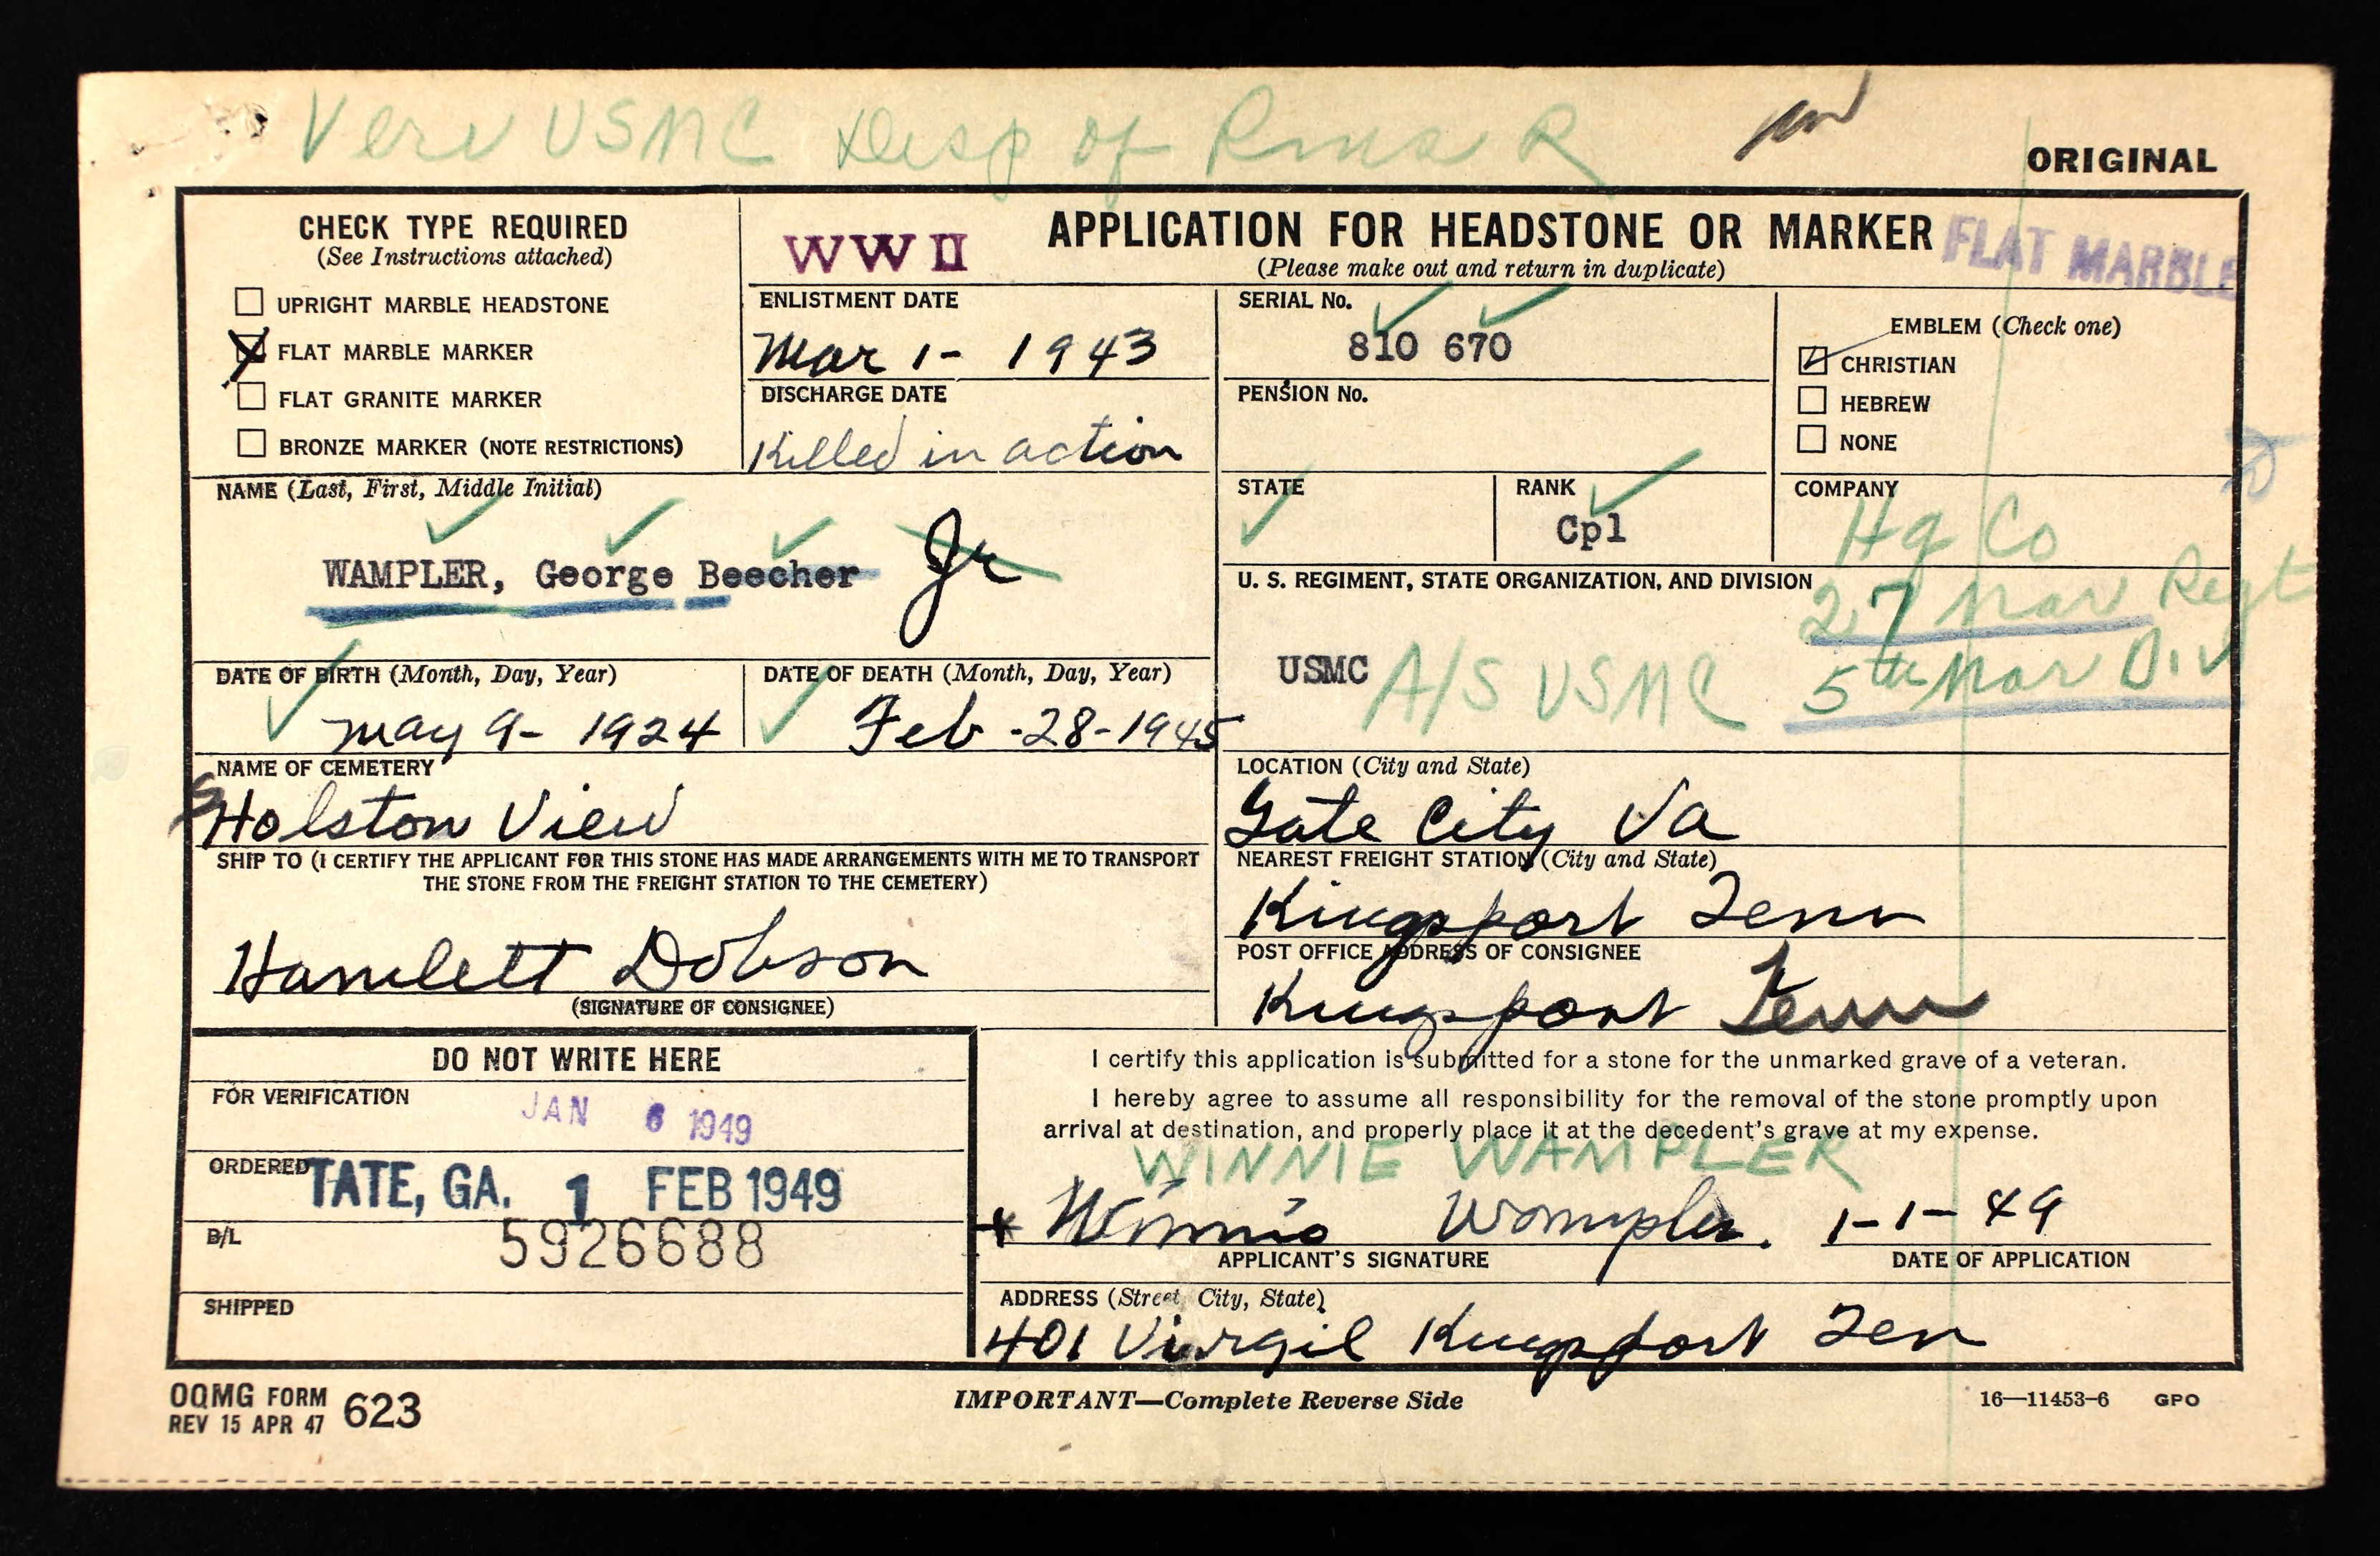 Veri USMC Disp of Rms R
ORIGINAL
CHECK TYPE REQUIRED
(See Instructions attached)
UPRIGHT MARBLE HEADSTONE
X FLAT MARBLE MARKER
FLAT GRANITE MARKER
BRONZE MARKER (NOTE RESTRICTIONS)
WW II
APPLICATION FOR HEADSTONE OR MARKER
(Please make out and return in duplicate)
FLAT MARBLE
ENLISTMENT DATE
Mar 1- 1943
DISCHARGE DATE
Killed in action
SERIAL No.
810 670
PENSION No.
EMBLEM (Check one)
CHRISTIAN
HEBREW
NONE
NAME (Last, First, Middle Initial)
WAMPLER, George Beecher Jr
STATE
RANK
Cpl
COMPANY
Hq Co
U. S. REGIMENT, STATE ORGANIZATION, AND DIVISION
27 Mar Regt
USMC A/S USMC 5th Mar Div
DATE OF BIRTH (Month, Day, Year)
May 9- 1924
DATE OF DEATH (Month, Day, Year)
Feb -28-1945
NAME OF CEMETERY
Holston View
LOCATION (City and State)
Gate City Va
SHIP TO (I CERTIFY THE APPLICANT FOR THIS STONE HAS MADE ARRANGEMENTS WITH ME TO TRANSPORT
THE STONE FROM THE FREIGHT STATION TO THE CEMETERY)
Hamlett Dobson
(SIGNATURE OF CONSIGNEE)
NEAREST FREIGHT STATION (City and State)
Kingsport Tenn
POST OFFICE ADDRESS OF CONSIGNEE
Kingsport Tenn
DO NOT WRITE HERE
FOR VERIFICATION
JAN 6 1949
ORDERED
TATE, GA. 1 FEB 1949
B/L
5926688
SHIPPED
I certify this application is submitted for a stone for the unmarked grave of a veteran.
I hereby agree to assume all responsibility for the removal of the stone promptly upon
arrival at destination, and properly place it at the decedent's grave at my expense.
WINNIE WAMPLER
Winnie Wampler. 1-1-49
APPLICANT'S SIGNATURE
DATE OF APPLICATION
ADDRESS (Street City, State)
401 Virgil Kingsport Ten
OQMG FORM 623
REV 15 APR 47
IMPORTANT—Complete Reverse Side
16—11453-6 GPO